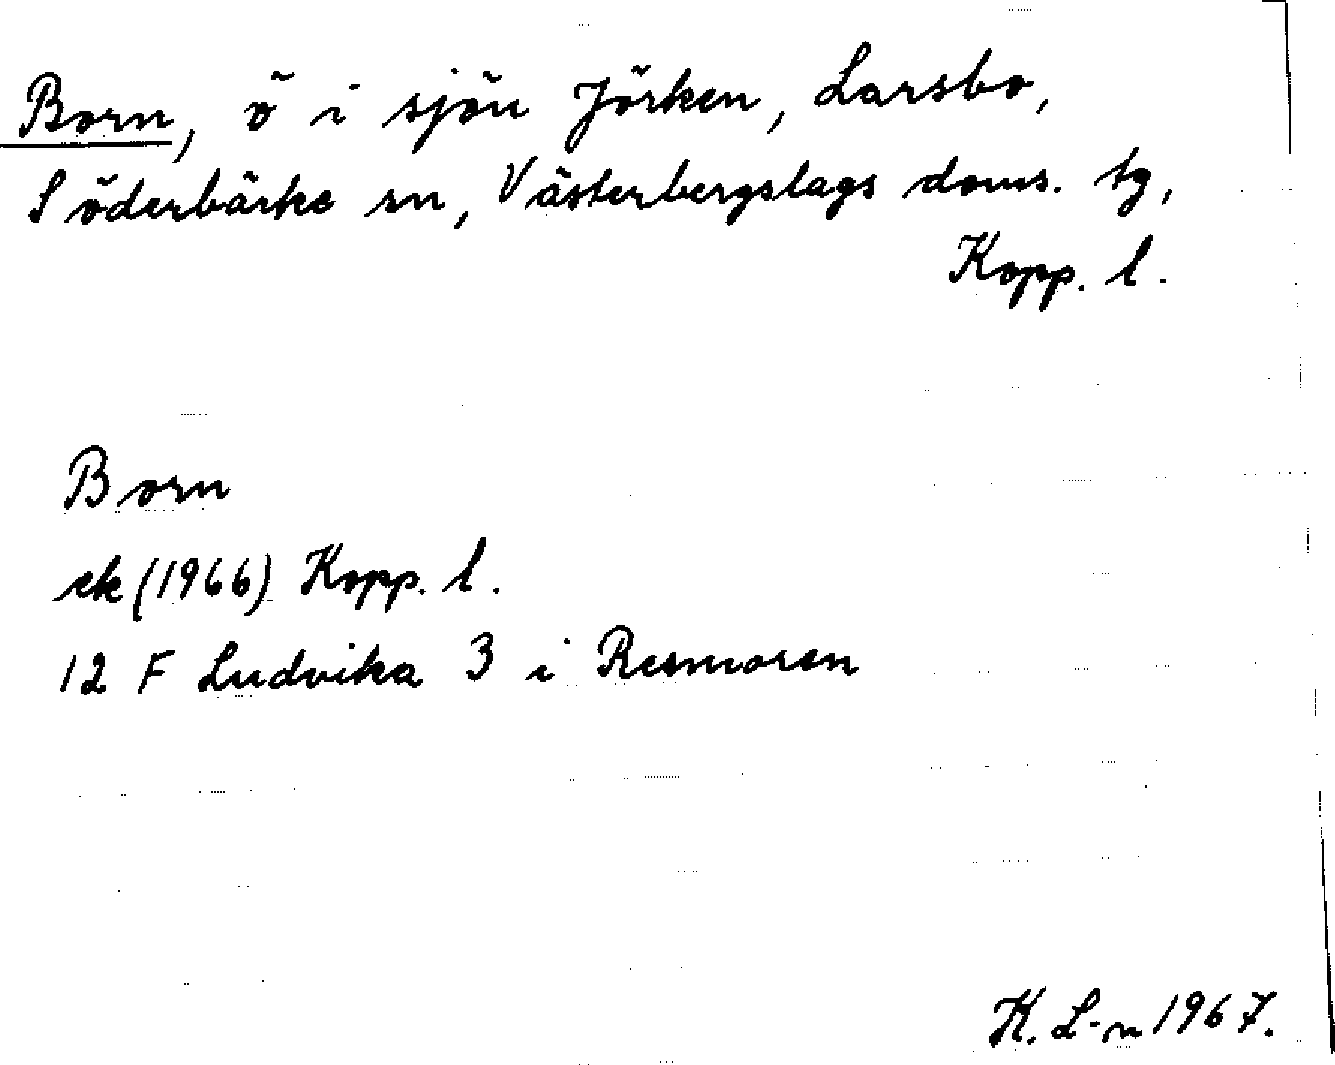 Born, ö i sjön Jörken, Larsbo,
Söderbärke sn, Västerbergslags doms. tg,
Kopp. l.
Born
ek (1966) Kopp. l.
12 F Ludvika 3 i Resmoren
K. L-n 1967.